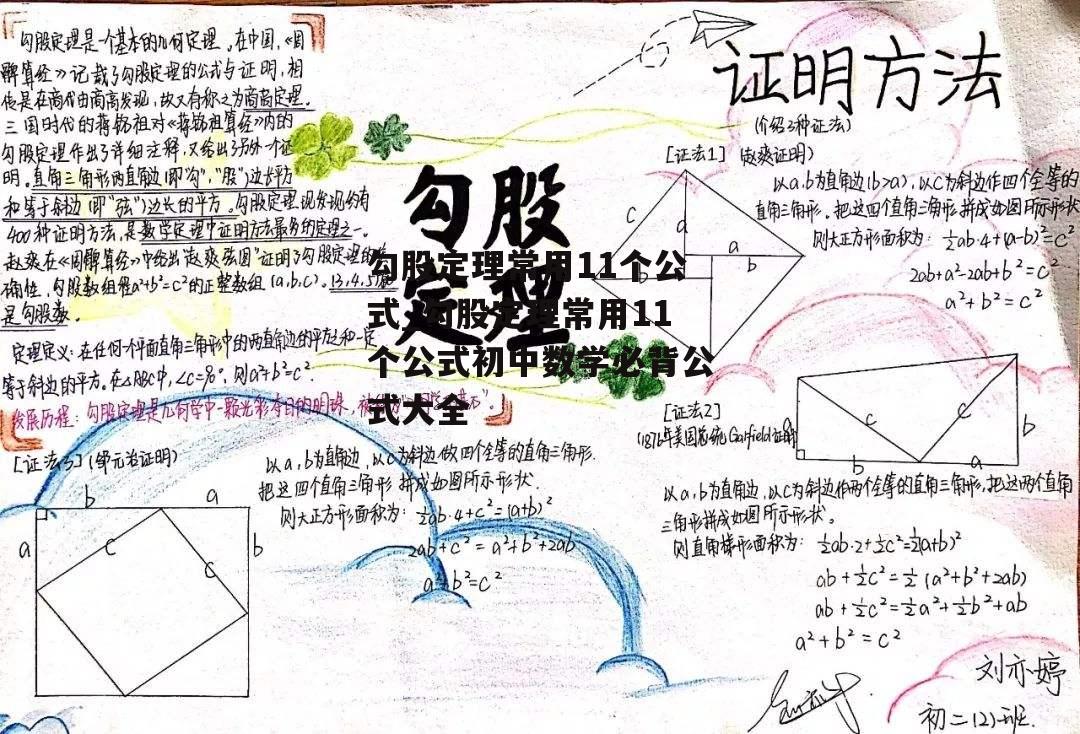 勾股定理是一个基本的几何定理。在中国,《周
髀算经》记载了勾股定理的公式与证明,相
传是在商代由商高发现,故又有称之为商高定理.
三国时代的蒋铭祖对《蒋铭祖算经》内的
勾股定理作出了详细注释,又给出了另外一个证
明。直角三角形两直角边(即"勾","股")边长平方
和等于斜边(即"弦")边长的平方。勾股定理现发现约有
400种证明方法,是数学定理中证明方法最多的定理之一。
赵爽在《周髀算经》中给出"赵爽弦图"证明了勾股定理的准
确性,勾股数组程a²+b²=c²的正整数组(a,b,c)。(3,4,5)
是勾股数。
定理定义:在任何一个平面直角三角形中的两直角边的平方之和一定
等于斜边的平方。在△ABC中,∠C=90°,则a²+b²=c².
发展历程:勾股定理是几何学中一颗光彩夺目的明珠,
勾股
定理
勾股定理常用11个公
式,勾股定理常用11
个公式初中数学必背公
式大全
证明方法
(介绍3种证法)
[证法1](赵爽证明)
以a.b为直角边(b>a),以c为斜边作四个全等的
直角三角形。把这四个直角三角形拼成如图所示形状
则大正方形面积为:½ab·4+(a-b)²=c²
2ab+a²-2ab+b²=c²
a²+b²=c²
c
a
a
b
b
[证法2]
(1876年美国总统Garfield证明)
a
c
c
b
b
a
以a,b为直角边,以c为斜边作两个全等的直角三角形,把这两个直角
三角形拼成如图所示形状。
则直角梯形面积为:½ab·2+½c²=½(a+b)²
ab+½c²=½(a²+b²+2ab)
ab+½c²=½a²+½b²+ab
a²+b²=c²
[证法3](邹元治证明)
以a,b为直角边,以c为斜边做四个全等的直角三角形.
把这四个直角三角形拼成如图所示形状.
则大正方形面积为:½ab·4+c²=(a+b)²
2ab+c²=a²+b²+2ab
a²+b²=c²
b
a
a
c
c
b
刘亦婷
初二(2)班.